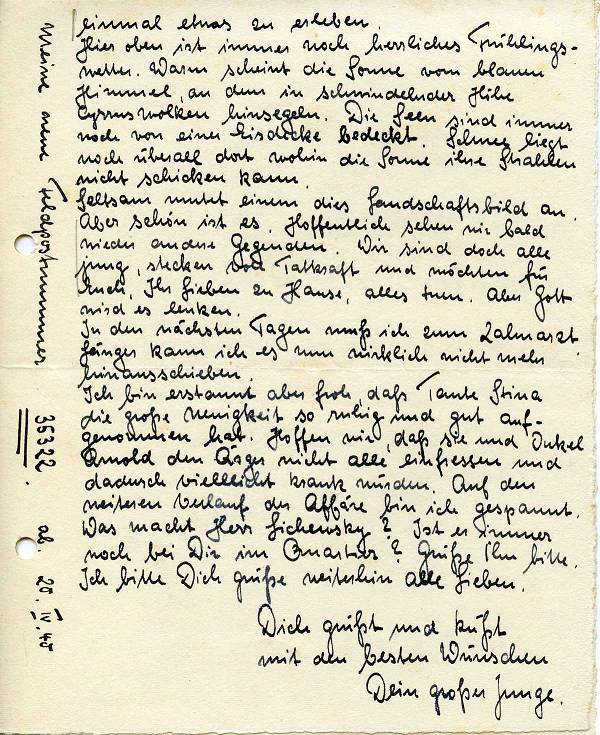 einmal etwas zu erleben.
Hier oben ist immer noch herrliches Frühlings-
wetter. Warm scheint die Sonne vom blauen
Himmel, an dem in schwindelnder Höhe
Cyrruswolken hinsegeln. Die Seen sind immer
noch von einer Eisdecke bedeckt. Schnee liegt
noch überall dort wohin die Sonne ihre Strahlen
nicht schicken kann.
Seltsam mutet einem dies Landschaftsbild an.
Aber schön ist es. Hoffentlich sehen wir bald
wieder andere Gegenden. Wir sind doch alle
jung, stecken voll Tatkraft und möchten für
Euch, Ihr Lieben zu Hause, alles tun. Aber Gott
wird es lenken.
In den nächsten Tagen muß ich zum Zahnarzt.
Länger kann ich es nun wirklich nicht mehr
hinausschieben.
Ich bin erstaunt aber froh, daß Tante Stina
die große Neuigkeit so ruhig und gut auf-
genommen hat. Hoffen wir, daß sie und Onkel
Arnold den Ärger nicht alle einfressen und
dadurch vielleicht krank würden. Auf den
weiteren Verlauf der Affäre bin ich gespannt.
Was macht Herr Lichensky? Ist er immer
noch bei Dir im Quartier? Grüße Ihn bitte.
Ich bitte Dich grüße weiterhin alle Lieben.
Dich grüßt und küßt
mit den besten Wünschen
Dein großer Junge.
Meine neue Feldpostnummer 35322. ab 20.IV.40